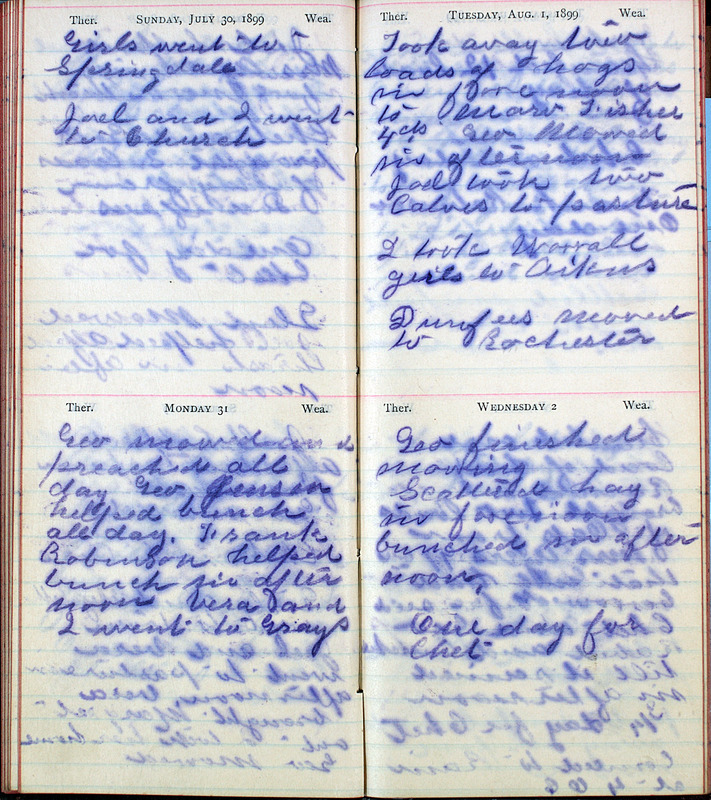 Ther. SUNDAY, JULY 30, 1899 Wea.
Girls went to
Springdale
Joel and I went
to Church
Ther. MONDAY 31 Wea.
Geo mowed and
preached all
day Geo Jensen
helped bunch
all day. Frank
Robinson helped
bunch in after
noon Vera and
I went to Grays
Ther. TUESDAY, AUG. 1, 1899 Wea.
Took away two
loads of hogs
in fore noon
to Marv Fisher
Geo Mowed
in after noon
Joel took two
Calves to pasture
I took Worrall
girls to Aikins
Durfees moved
to Rochester
Ther. WEDNESDAY 2 Wea.
Geo finished
mowing
Scattered hay
in forenoon
bunched in after
noon,
One day for
Chet